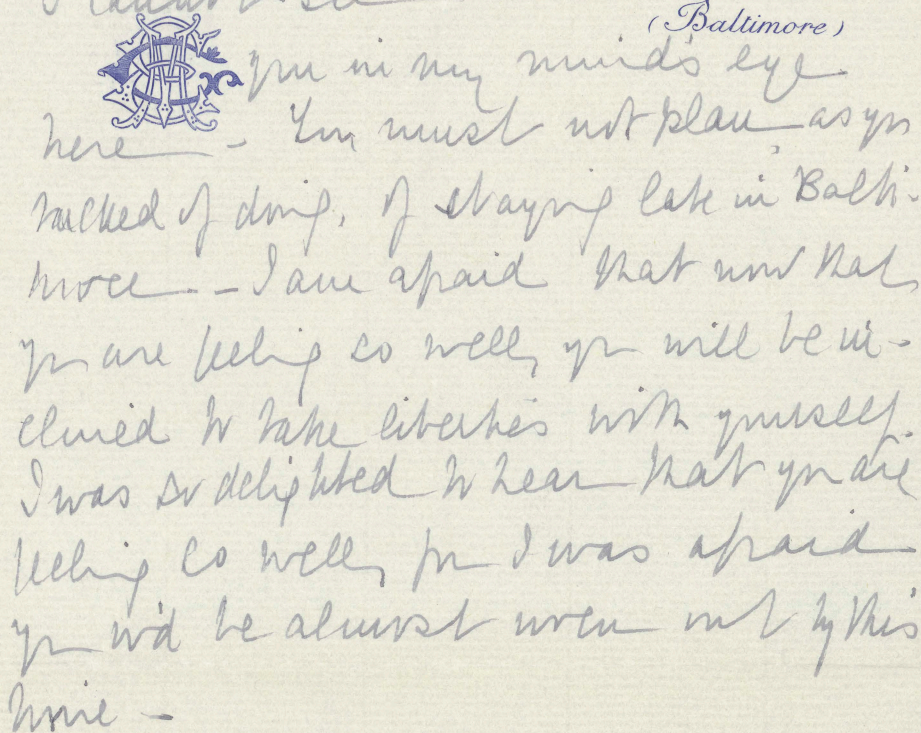 (Baltimore)
you in my mind's eye
here – You must not plan as you
talked of doing, of staying late in Balti-
more – I am afraid that now that
you are feeling so well, you will be in-
clined to take liberties with yourself.
I was so delighted to hear that you are
feeling so well, for I was afraid
you w'd be almost worn out by this
time –